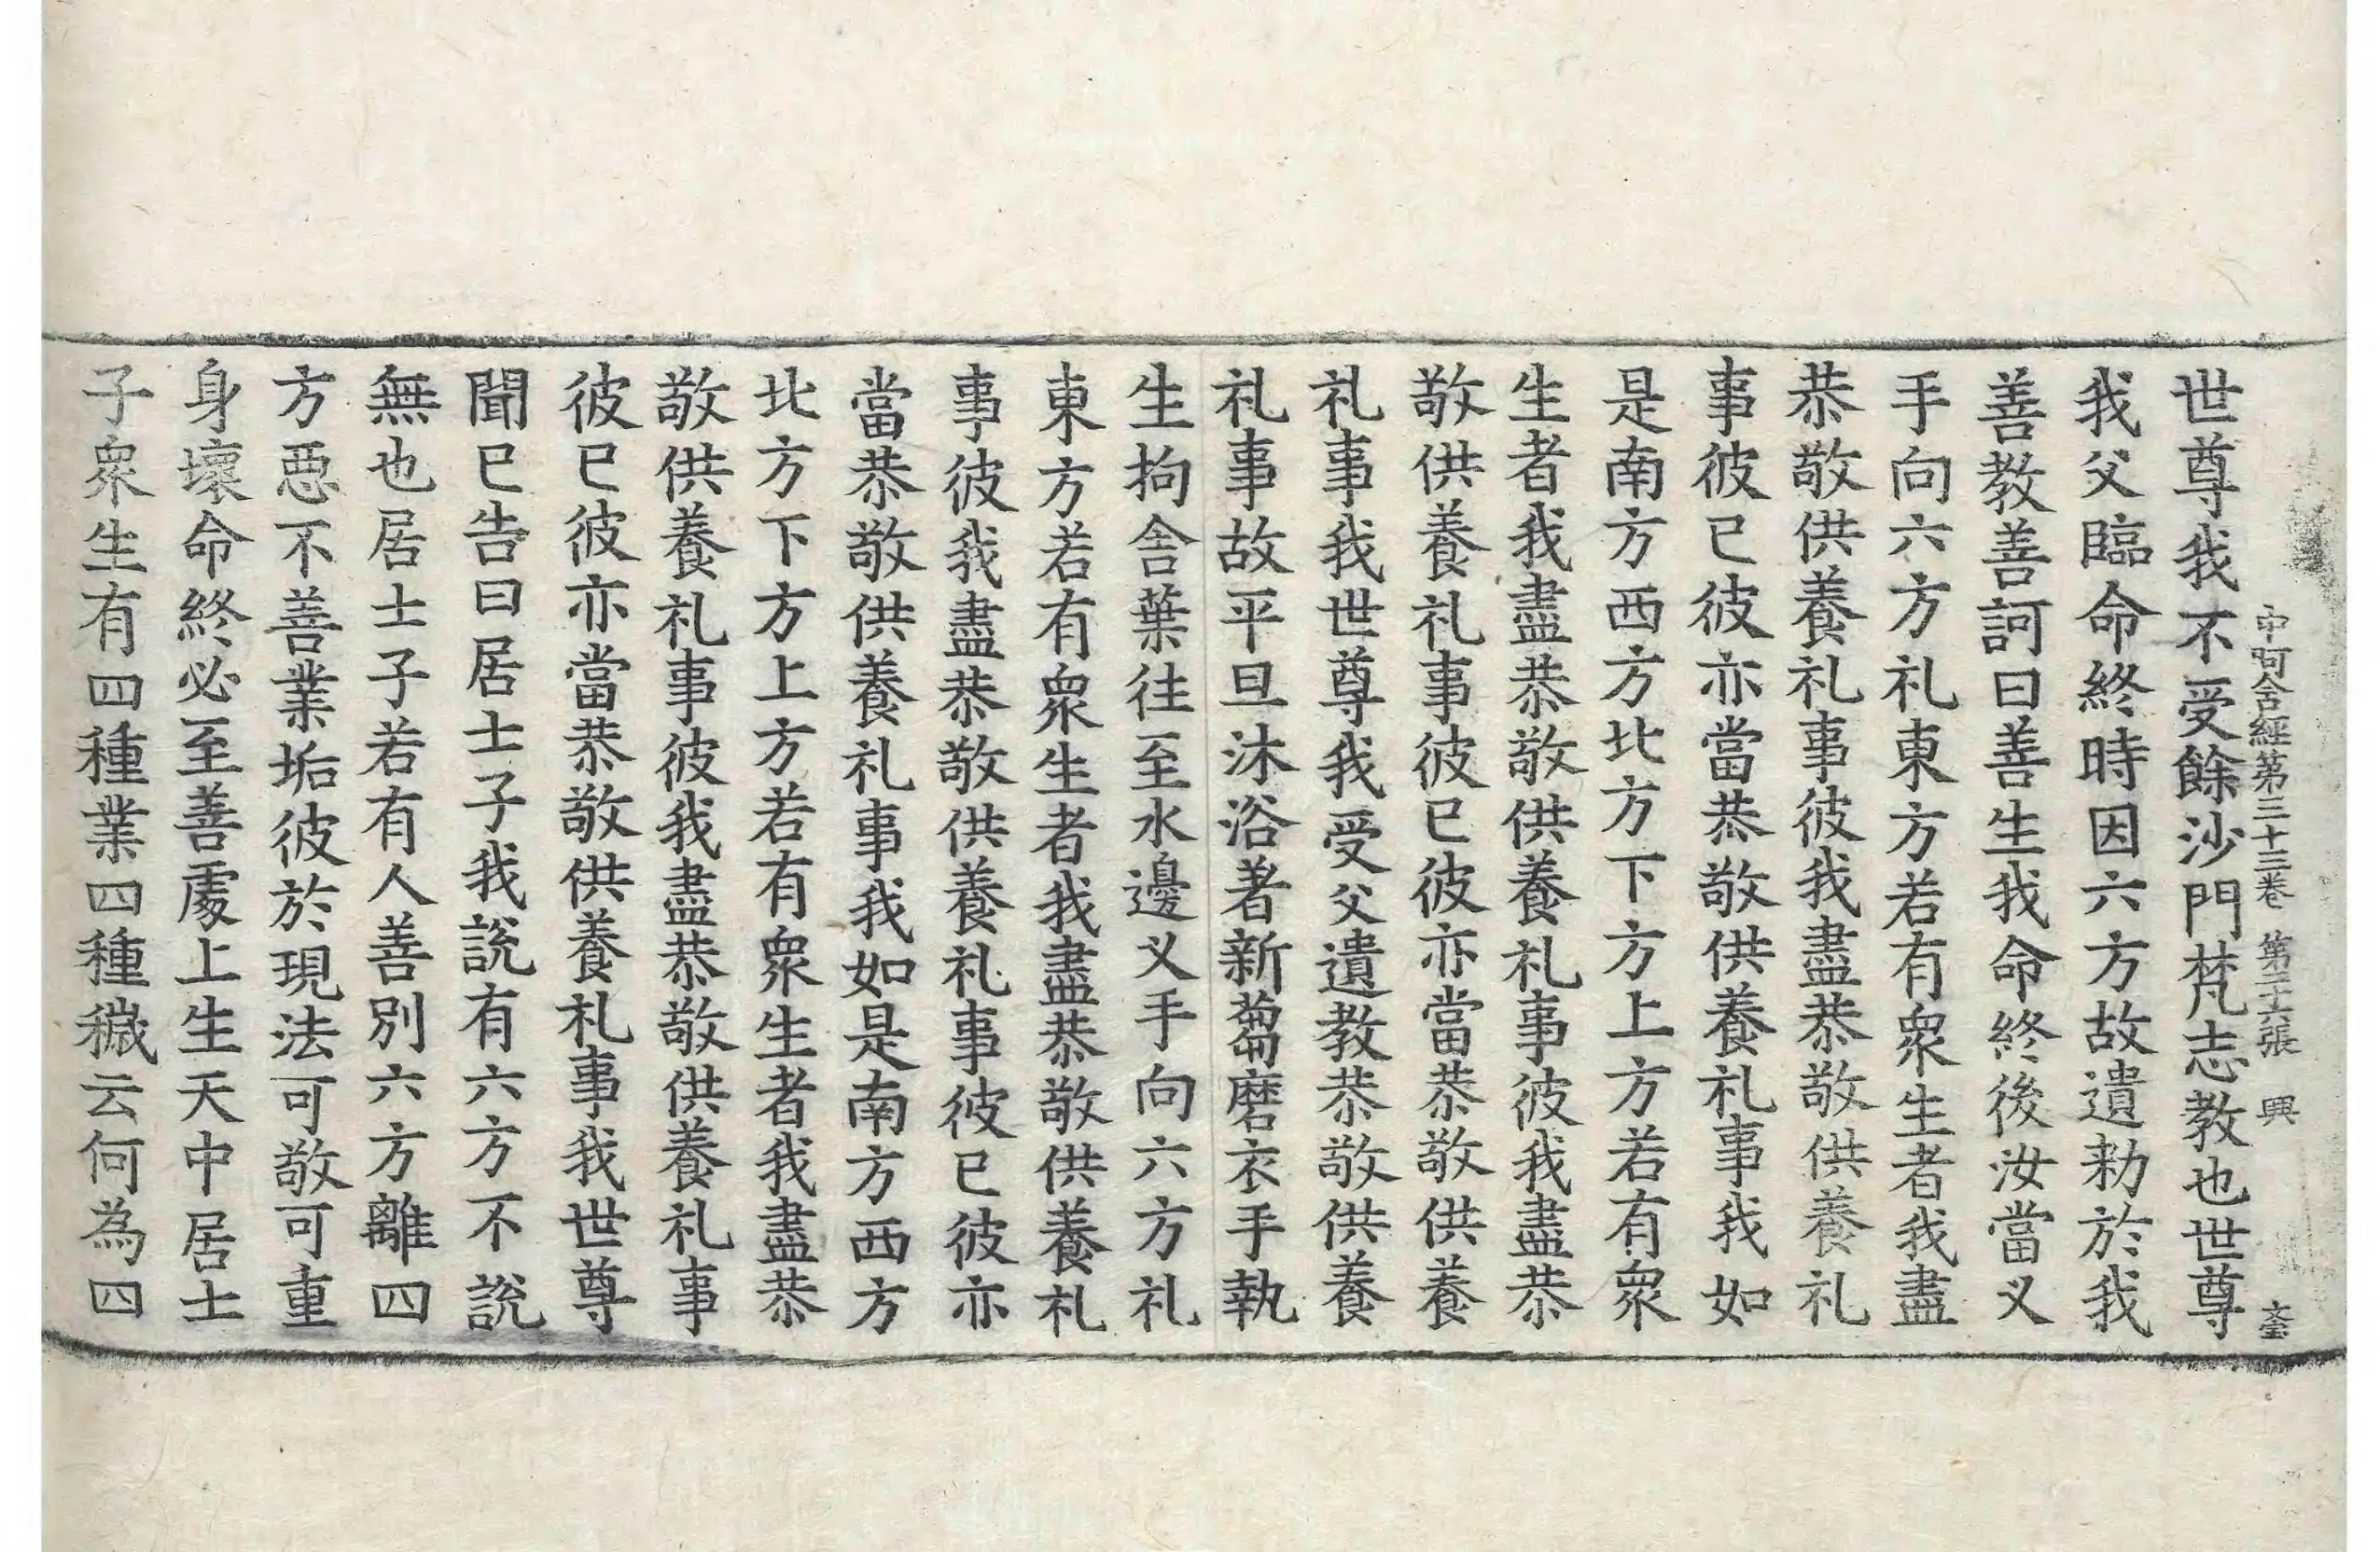 中阿含經第三十三卷　第二十六張　興
世尊我不受餘沙門梵志教也世尊
我父臨命終時因六方故遺勑於我
善教善訶曰善生我命終後汝當叉
手向六方礼東方若有衆生者我盡
恭敬供養礼事彼我盡恭敬供養礼
事彼已彼亦當恭敬供養礼事我如
是南方西方北方下方上方若有衆
生者我盡恭敬供養礼事彼我盡恭
敬供養礼事彼已彼亦當恭敬供養
礼事我世尊我受父遺教恭敬供養
礼事故平旦沐浴著新蒭磨衣手執
生拘舍葉往至水邊叉手向六方礼
東方若有衆生者我盡恭敬供養礼
事彼我盡恭敬供養礼事彼已彼亦
當恭敬供養礼事我如是南方西方
北方下方上方若有衆生者我盡恭
敬供養礼事彼我盡恭敬供養礼事
彼已彼亦當恭敬供養礼事我世尊
聞已告曰居士子我說有六方不說
無也居士子若有人善別六方離四
方惡不善業垢彼於現法可敬可重
身壞命終必至善處上生天中居士
子衆生有四種業四種穢云何為四